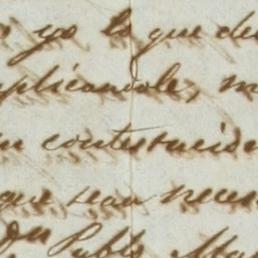 yo lo que de
plicandole, m
contestacion
que sean neces
del Pueblo